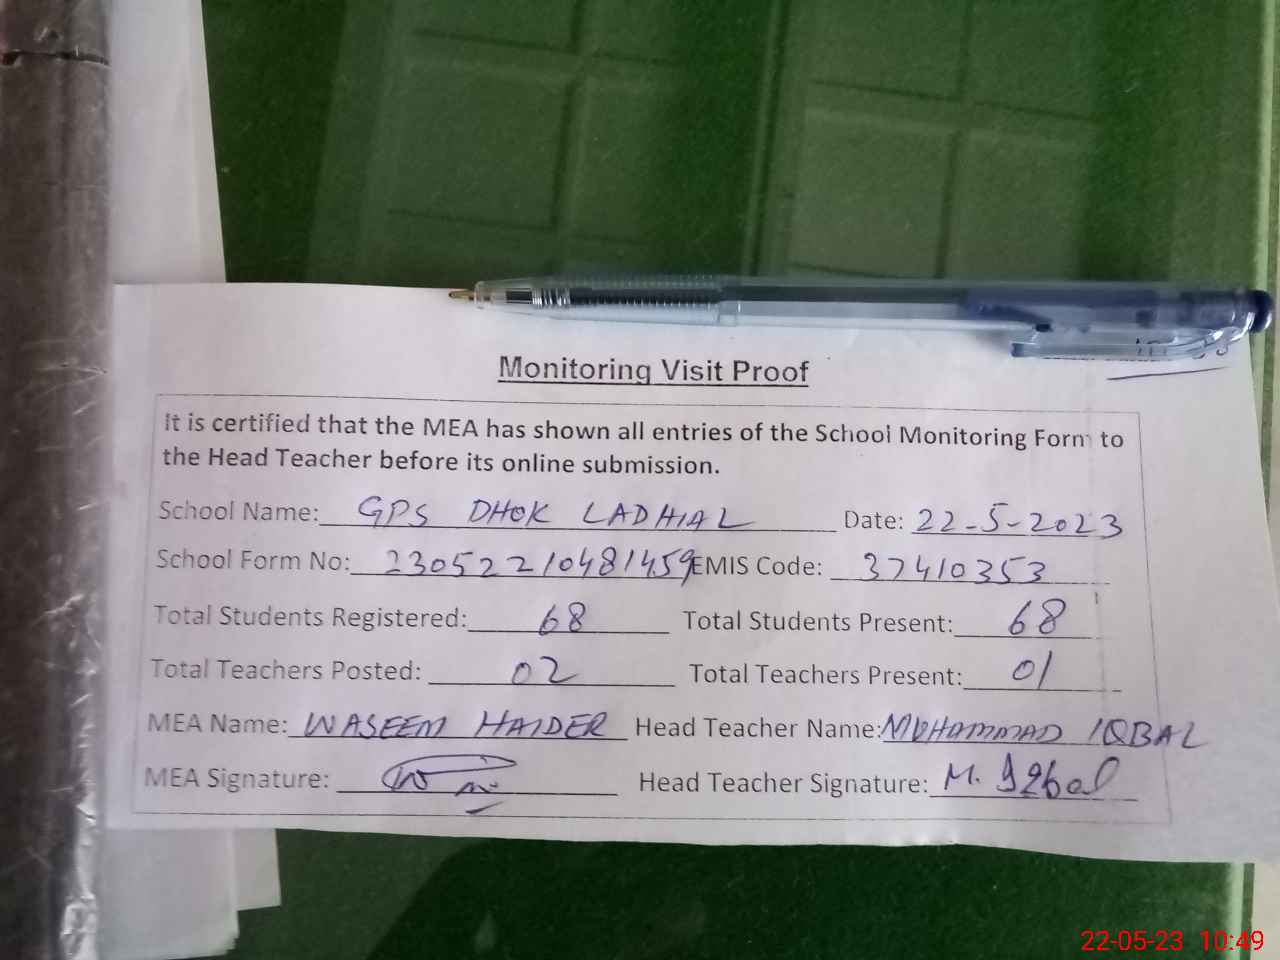 Monitoring Visit Proof
It is certified that the MEA has shown all entries of the School Monitoring Form to
the Head Teacher before its online submission.
School Name: GPS DHOK LADHIAL Date: 22-5-2023
School Form No: 23052210481459 EMIS Code: 37410353
Total Students Registered: 68 Total Students Present: 68
Total Teachers Posted: 02 Total Teachers Present: 01
MEA Name: WASEEM HAIDER Head Teacher Name: MUHAMMAD IQBAL
MEA Signature: Head Teacher Signature: M. Iqbal
22-05-23 10:49